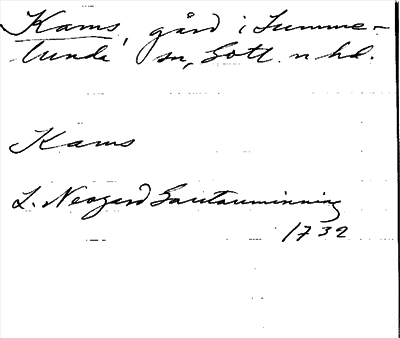 Kams, gård i Lumme-
lunda sn, Gotl. n hd.
Kams
L. Neogard Gautauminning
1732